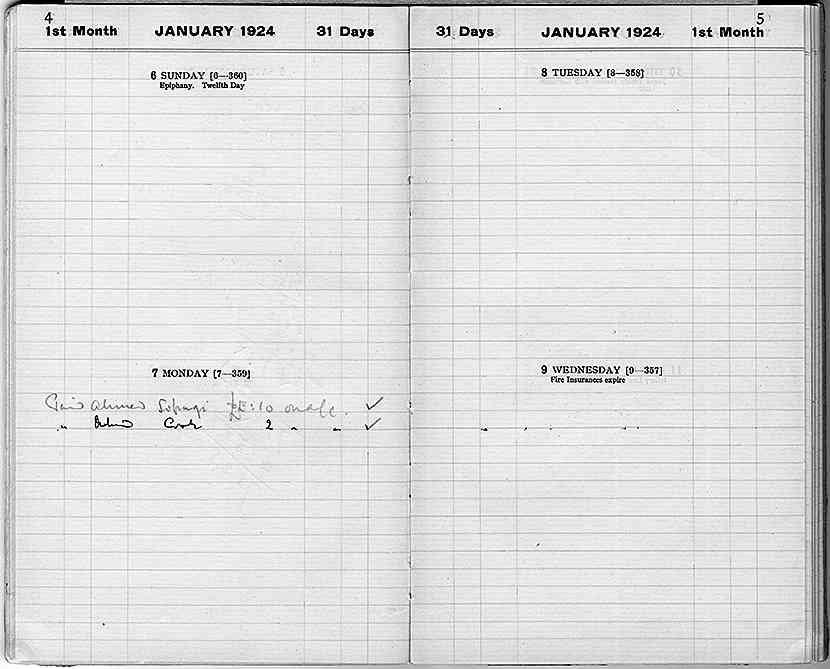 4
1st Month JANUARY 1924 31 Days
6 SUNDAY [6—360]
Epiphany. Twelfth Day
7 MONDAY [7—359]
Paid Ahmed £E:10 on a/c. ✓
" Cook 2 " " ✓
5
31 Days JANUARY 1924 1st Month
8 TUESDAY [8—358]
9 WEDNESDAY [9—357]
Fire Insurances expire